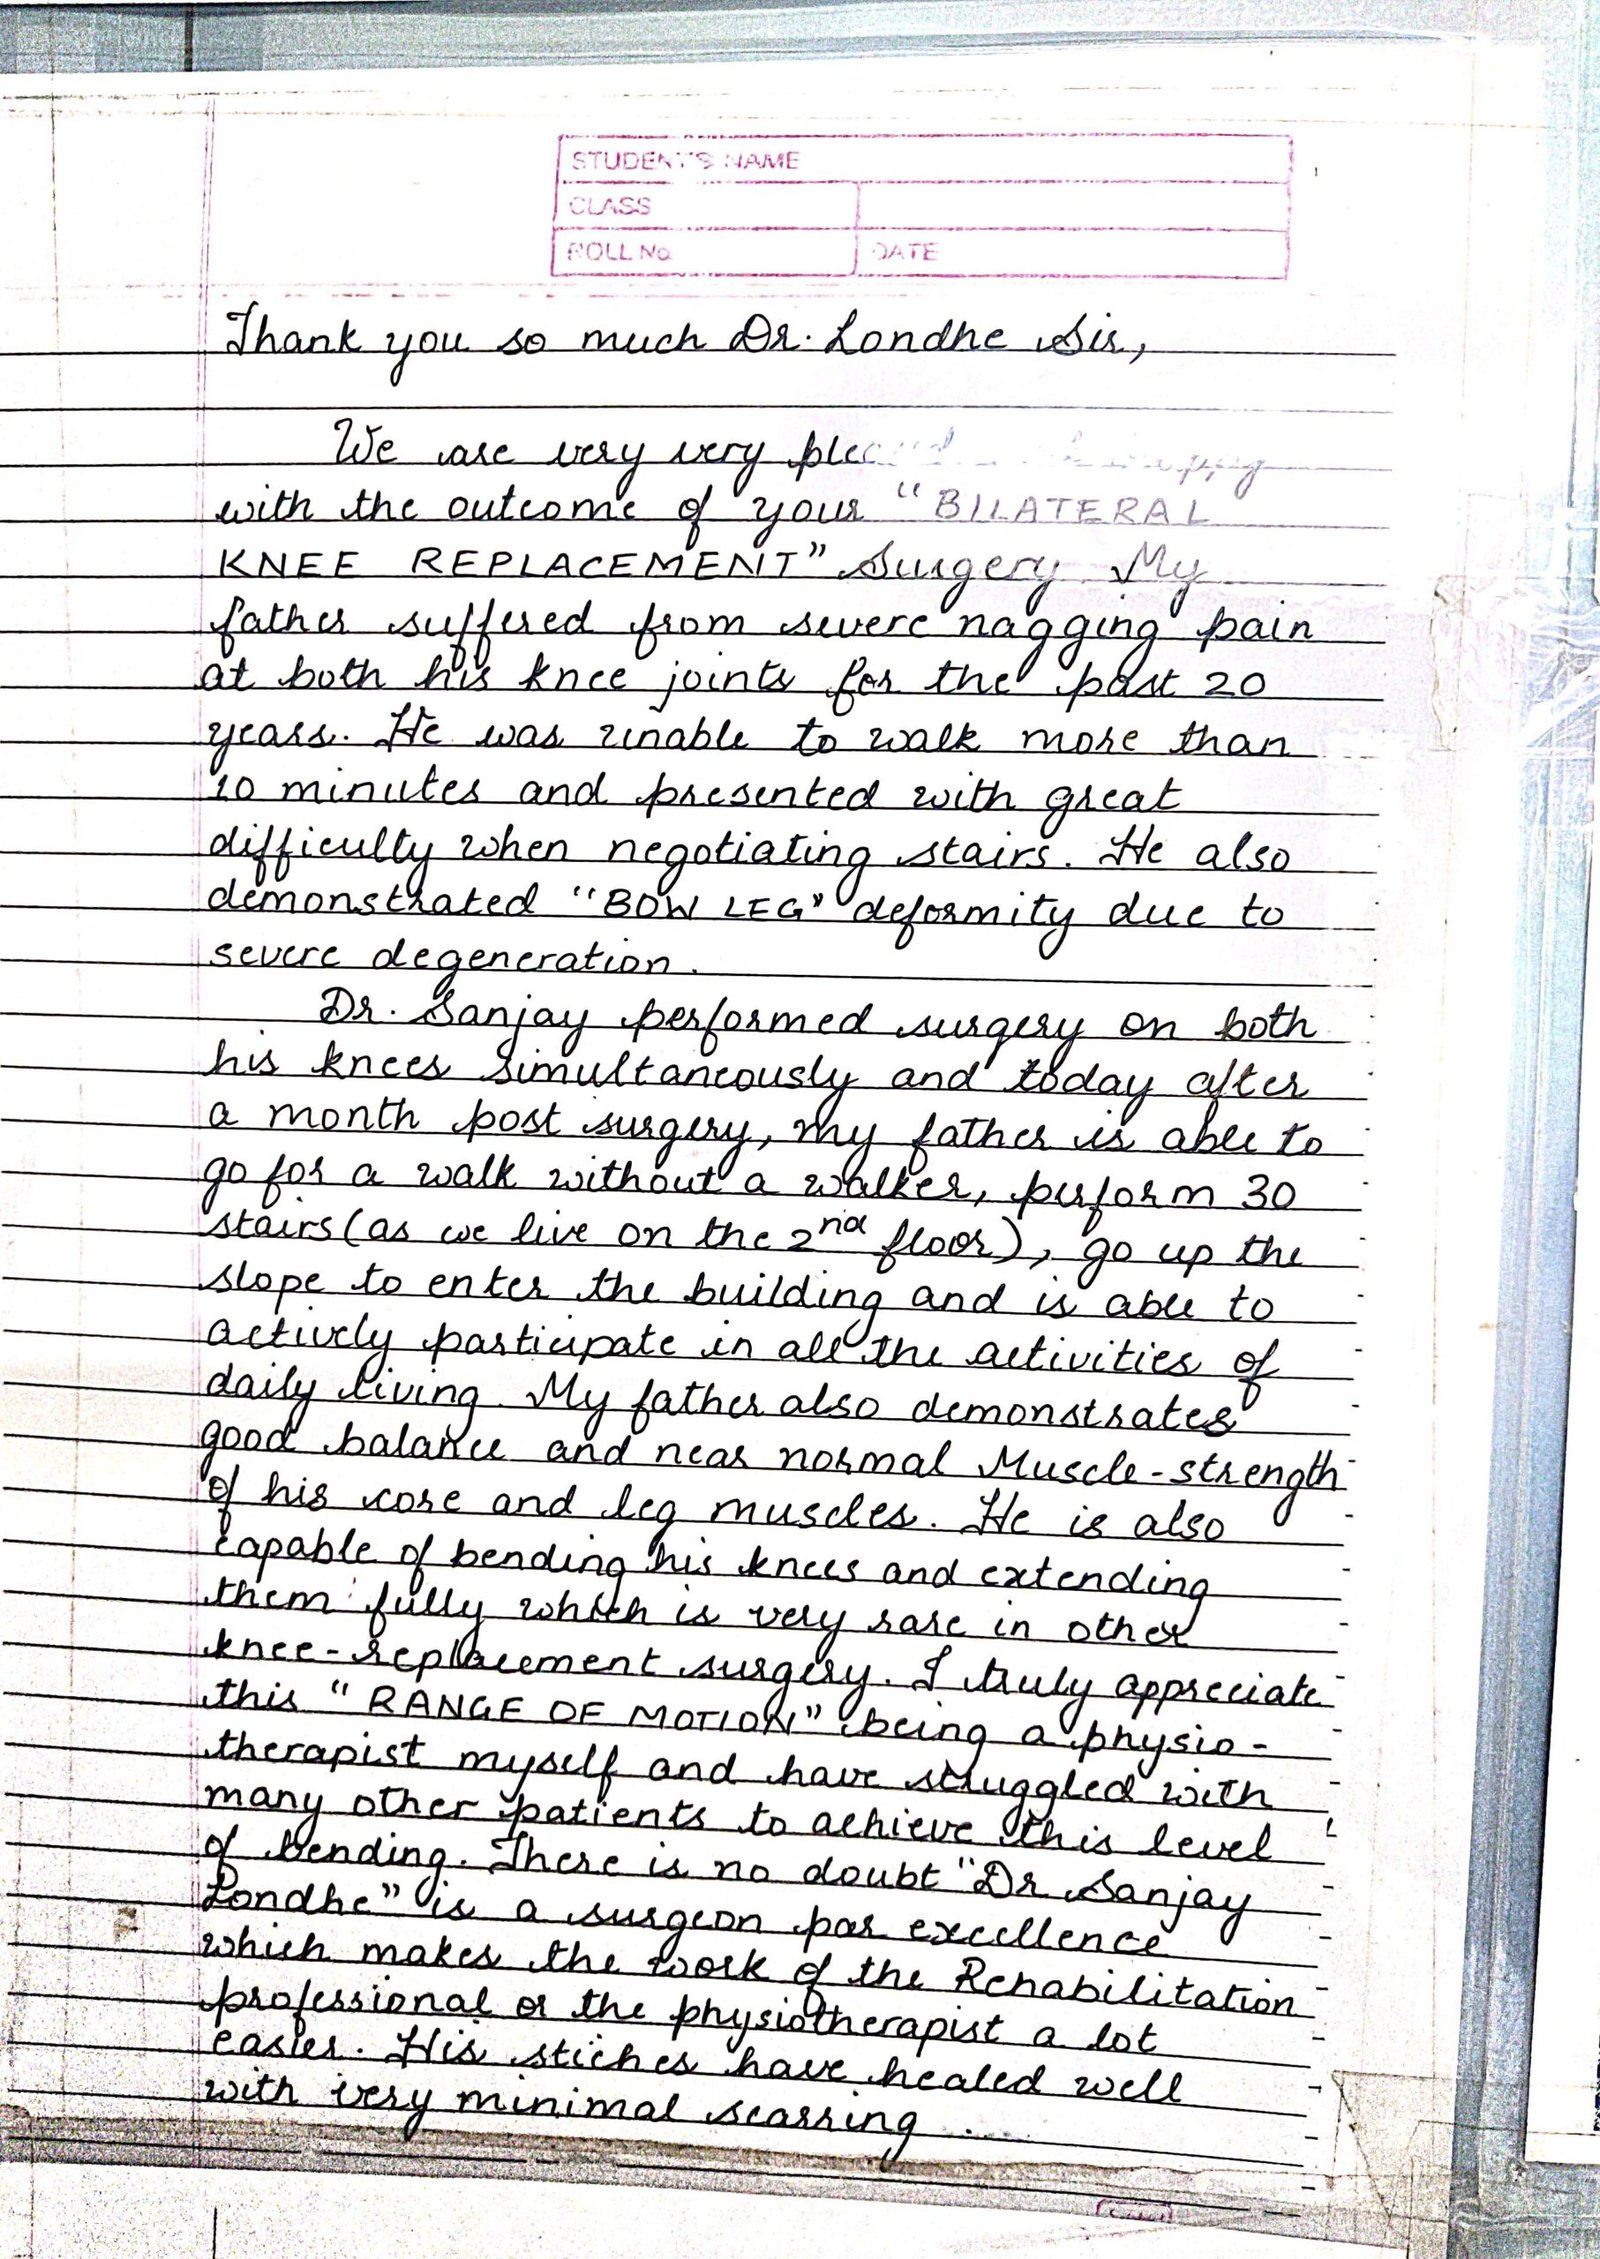 STUDENT'S NAME
CLASS
ROLL No
DATE
Thank you so much Dr. Londhe Sir,
We are very very pleased
with the outcome of your "BILATERAL
KNEE REPLACEMENT" Surgery. My
father suffered from severe nagging pain
at both his knee joints for the past 20
years. He was unable to walk more than
10 minutes and presented with great
difficulty when negotiating stairs. He also
demonstrated "BOW LEG" deformity due to
severe degeneration.
Dr. Sanjay performed surgery on both
his knees simultaneously and today after
a month post surgery, my father is able to
go for a walk without a walker, perform 30
stairs (as we live on the 2nd floor), go up the
slope to enter the building and is able to
actively participate in all the activities of
daily living. My father also demonstrates
good balance and near normal Muscle-strength
of his core and leg muscles. He is also
capable of bending his knees and extending
them fully which is very rare in other
knee-replacement surgery. I truly appreciate
this "RANGE OF MOTION" being a physio-
therapist myself and have struggled with
many other patients to achieve this level
of bending. There is no doubt "Dr Sanjay
Londhe" is a surgeon par excellence
which makes the work of the Rehabilitation
professional or the physiotherapist a lot
easier. His stiches have healed well
with very minimal scarring ....